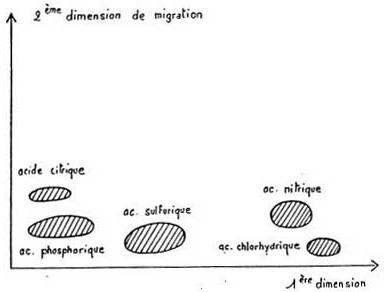 2ème dimension de migration
acide citrique
ac. nitrique
ac. sulfurique
ac. phosphorique
ac. chlorhydrique
1ère dimension